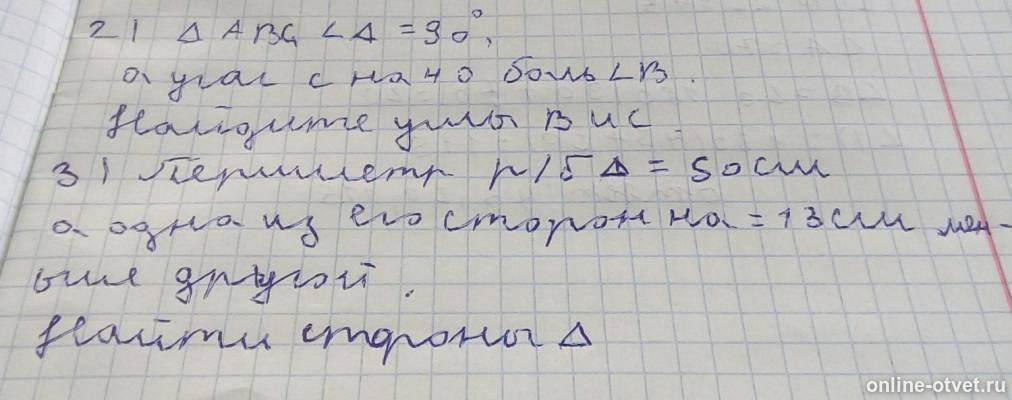 2) Δ ABC, ∠A = 90°,
а угол C на 40 боль ∠B.
Найдите углы B и C.
3) Периметр р/б Δ = 50 см
а одна из его сторон на = 13 см мен-
ьше другой.
Найти стороны Δ
online-otvet.ru